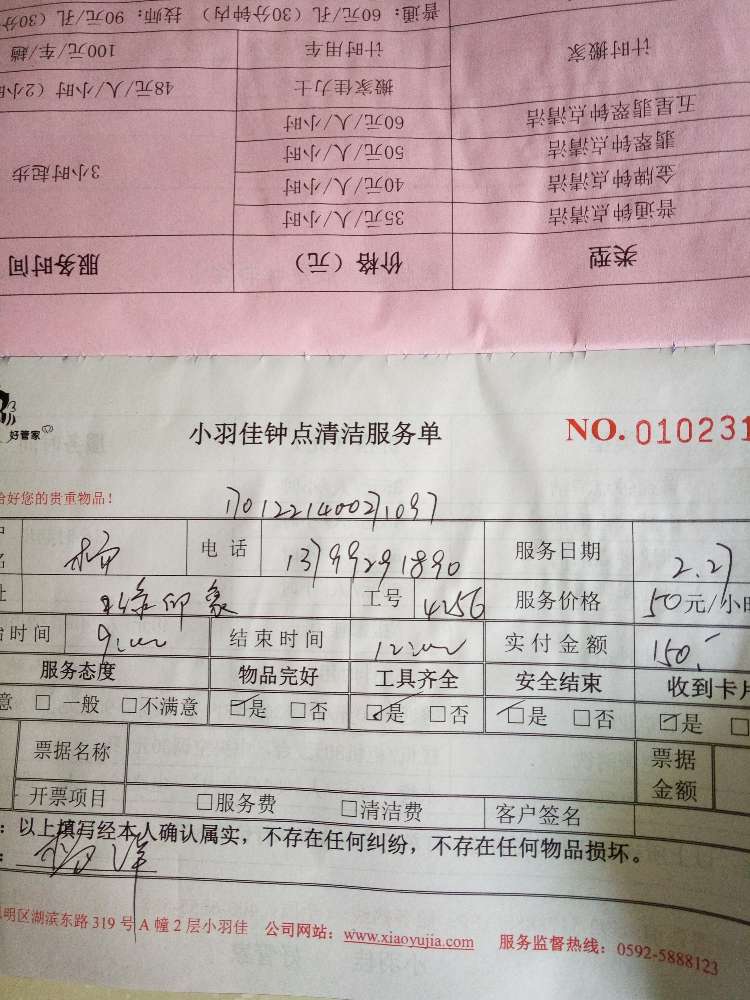 普通：60元/孔（30分钟内） 技师：90元/孔（30分
计时搬家 计时用车 100元/车/趟
搬家佳力士 48元/人/小时（2小
五星翡翠钟点清洁 60元/人/小时
翡翠钟点清洁 50元/人/小时
3小时起步
金牌钟点清洁 40元/人/小时
普通钟点清洁 35元/人/小时
类型 价格（元） 服务时间
好管家
小羽佳钟点清洁服务单
NO. 010231
好您的贵重物品！
1701221400271097
名 杨 电话 13799291890 服务日期 2.27
址 绿印象 工号 4256 服务价格 50元/小时
时间 9:00 结束时间 12:00 实付金额 150.-
服务态度 物品完好 工具齐全 安全结束 收到卡片
意 □ 一般 □不满意 ☑是 □否 ☑是 □否 ☑是 □否 ☑是 □
票据名称 票据金额
开票项目 □服务费 □清洁费 客户签名
：以上填写经本人确认属实，不存在任何纠纷，不存在任何物品损坏。
明区湖滨东路 319 号 A 幢 2 层小羽佳 公司网站：www.xiaoyujia.com 服务监督热线：0592-5888123